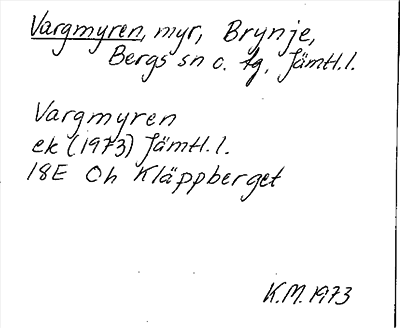 Vargmyren, myr, Brynje,
Bergs sn o. tg, Jämtl.l.
Vargmyren
ek (1973) Jämtl.l.
18E 0h Kläppberget
K.M. 1973